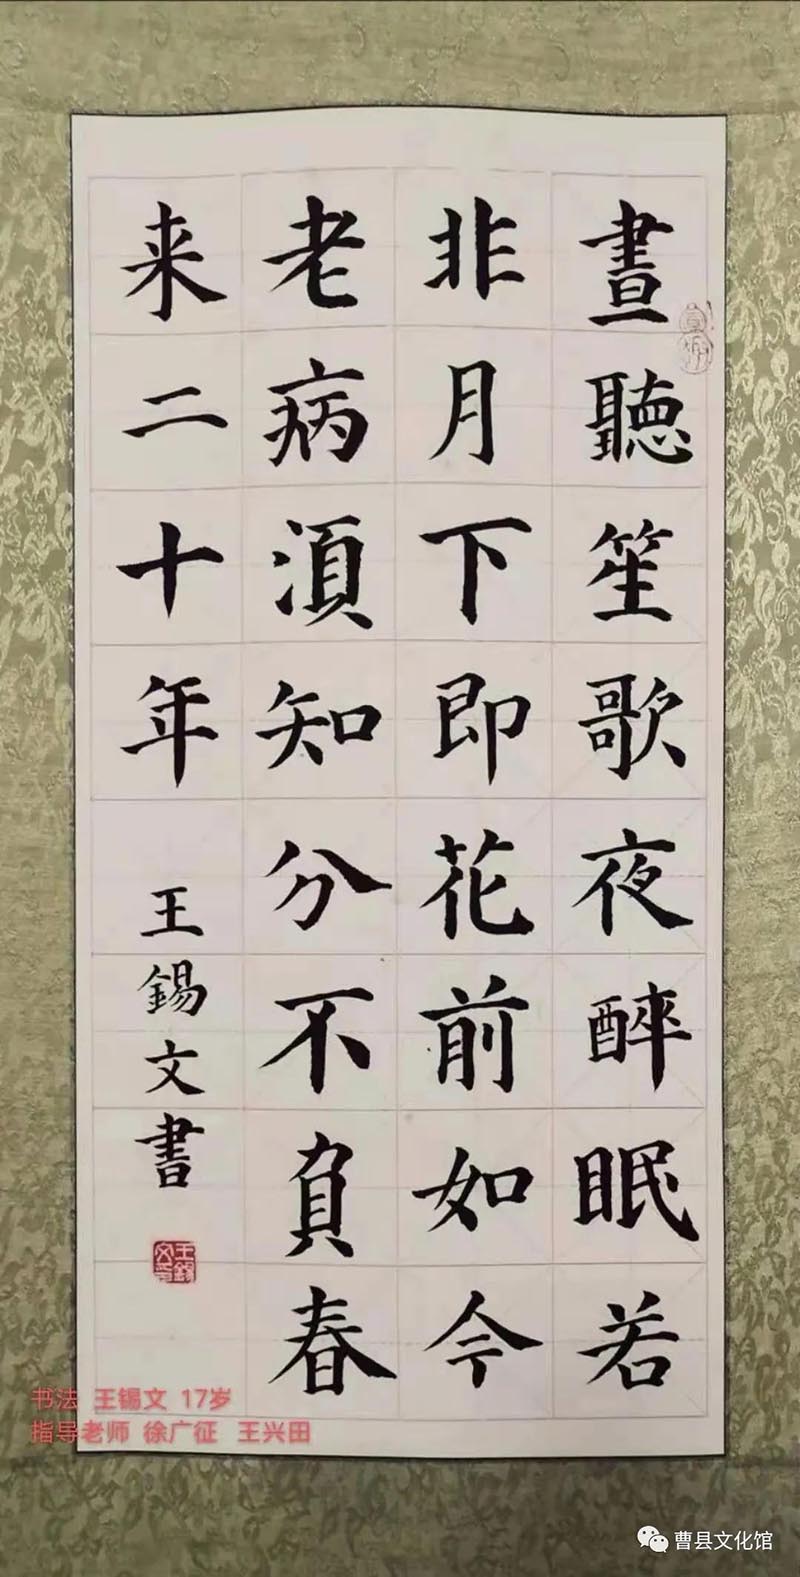 晝聽笙歌夜醉眠若
非月下即花前如今
老病湏知分不負春
来二十年
王錫文書
王錫
书法 王锡文 17岁
指导老师 徐广征 王兴田
曹县文化馆